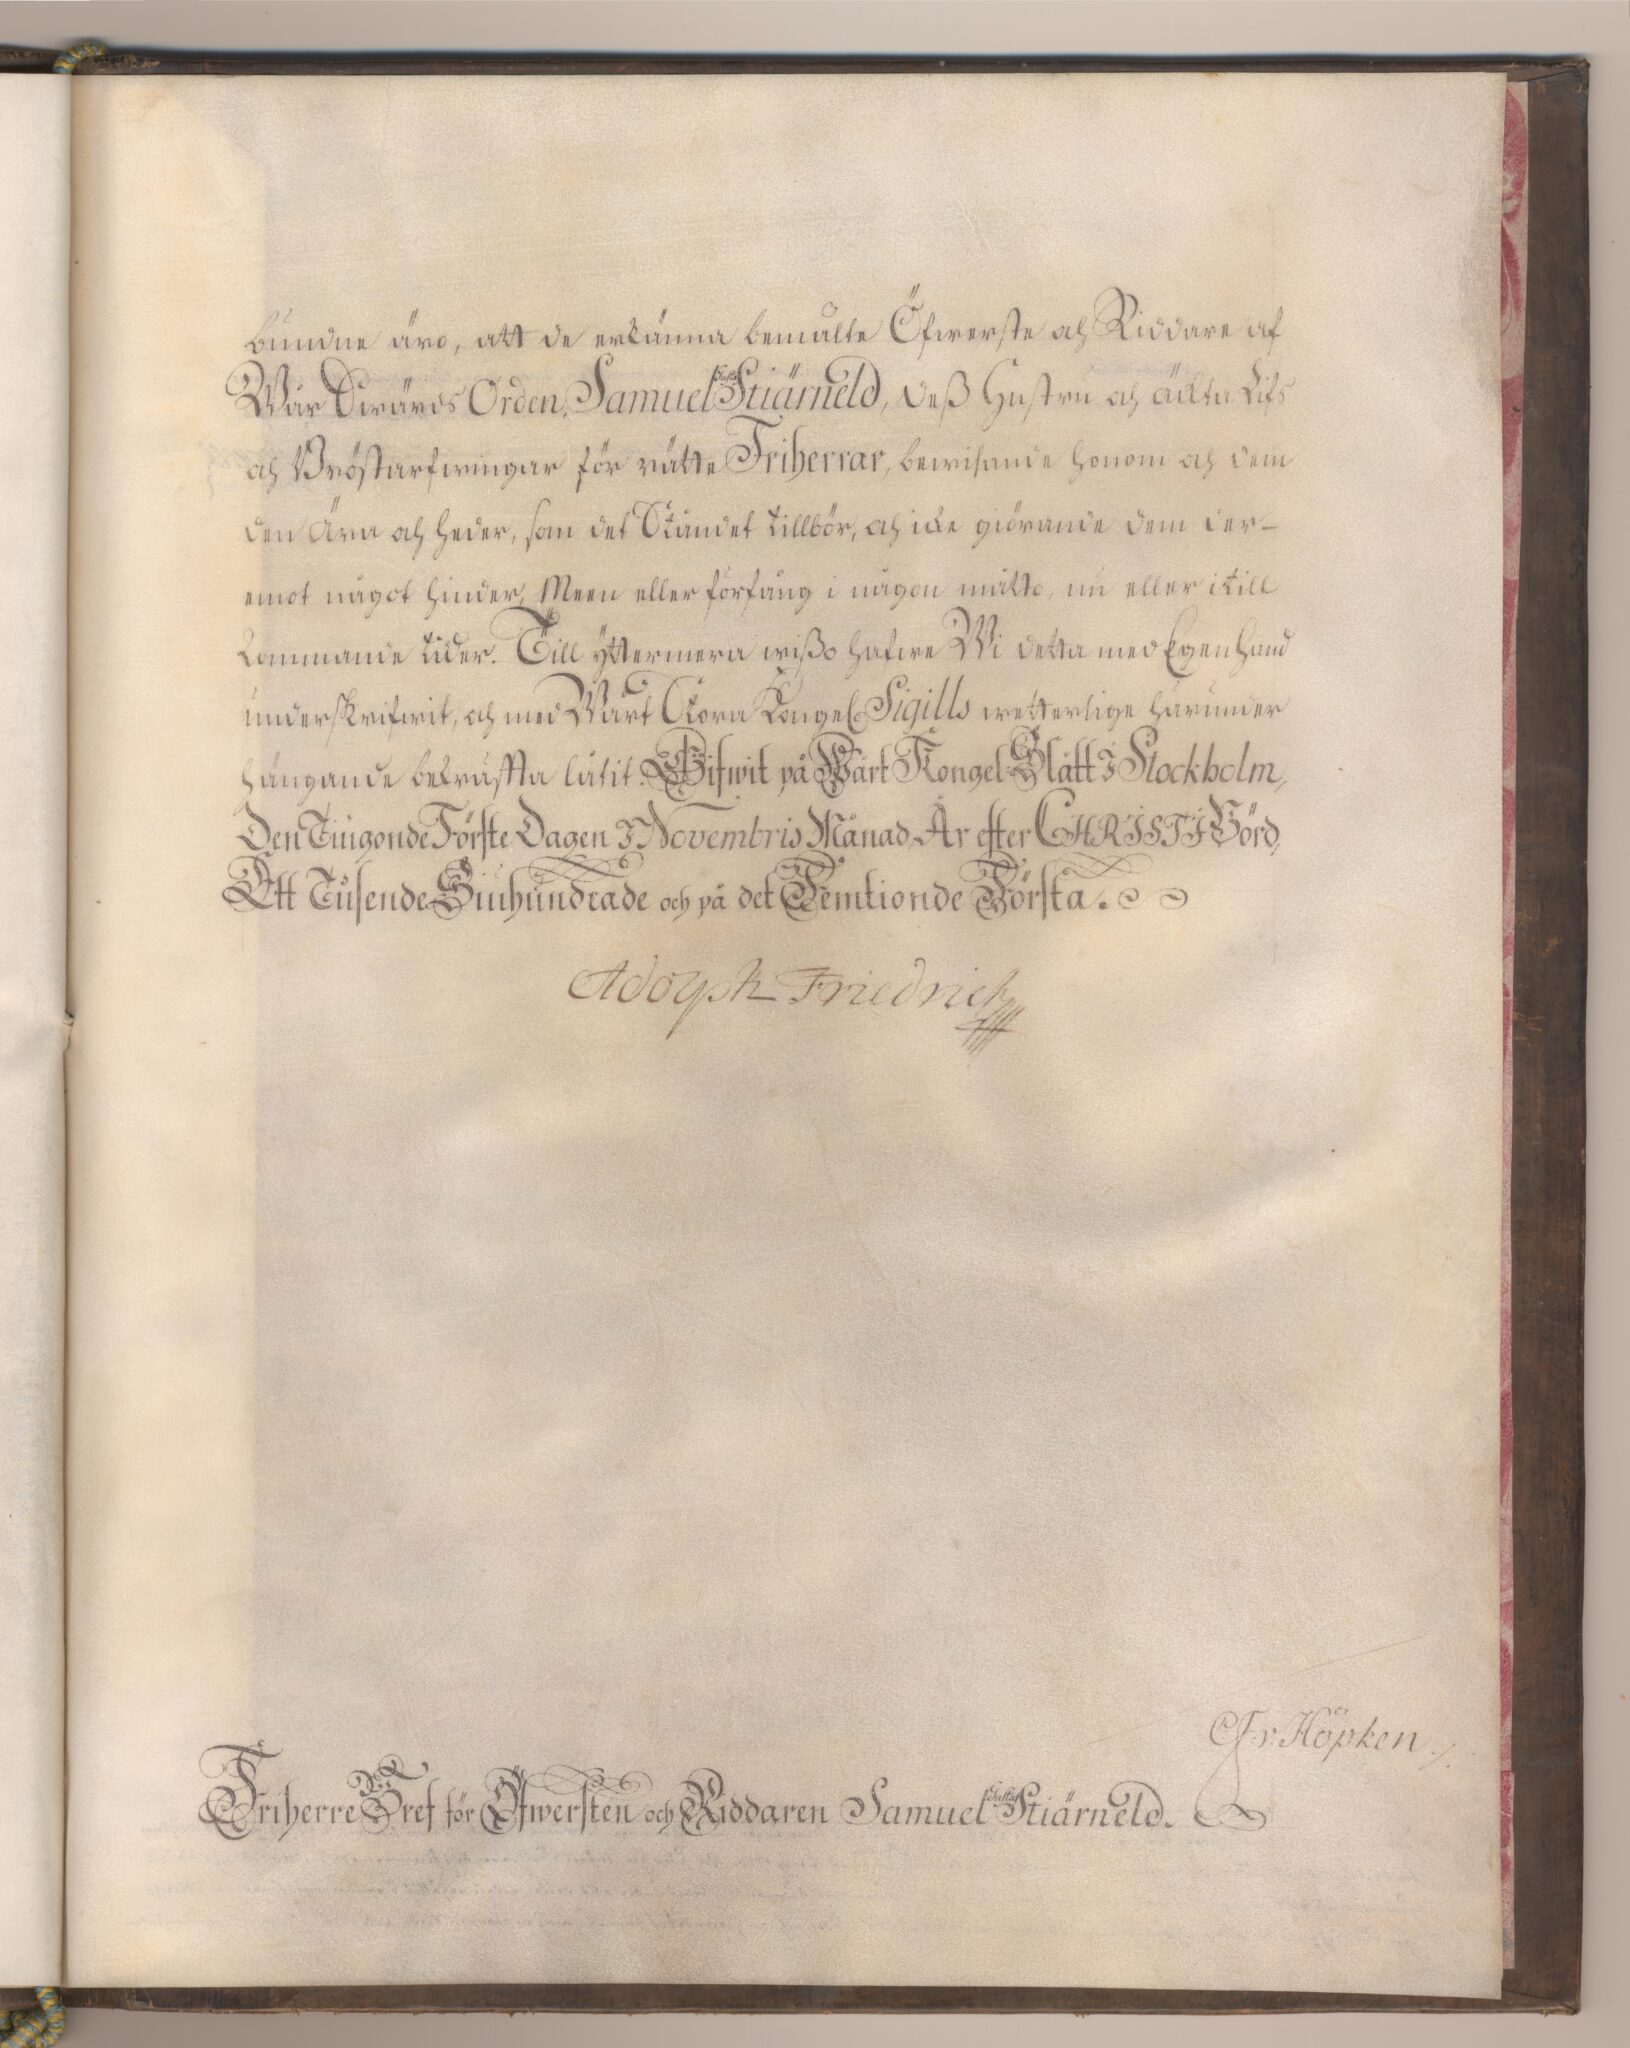 bundne äro, att de erkänna bemälte Öfwerste och Riddare af
Wår Swärds Orden, Samuel Gustaf Stiärneld, deß Hustru och äckta Lifs
och Bröstarfwingar för rätte Friherrar, bewisande honom och dem
den Ära och heder, som det Ståndet tillbör, och icke giörande dem der-
emot något hinder, Meen eller förfång i någon måtto, nu eller i till
kommande tider. Till yttermera wißo hafwe Wi detta med Egen hand
underskrifwit, och med Wårt Stora Kongel. Sigills wetterlige härunder
hängande bekräffta låtit. Gifwit på Wårt Kongel. Slått I Stockholm,
Den Tiugonde Förste Dagen I Novembris Månad, År efter CHRISTI Börd,
Ett Tusende Siuhundrade och på det Femtionde Första.
Adolph Friedrich
v. Höpken
Friherre Bref för Öfwersten och Riddaren Samuel Gustaf Stiärneld.